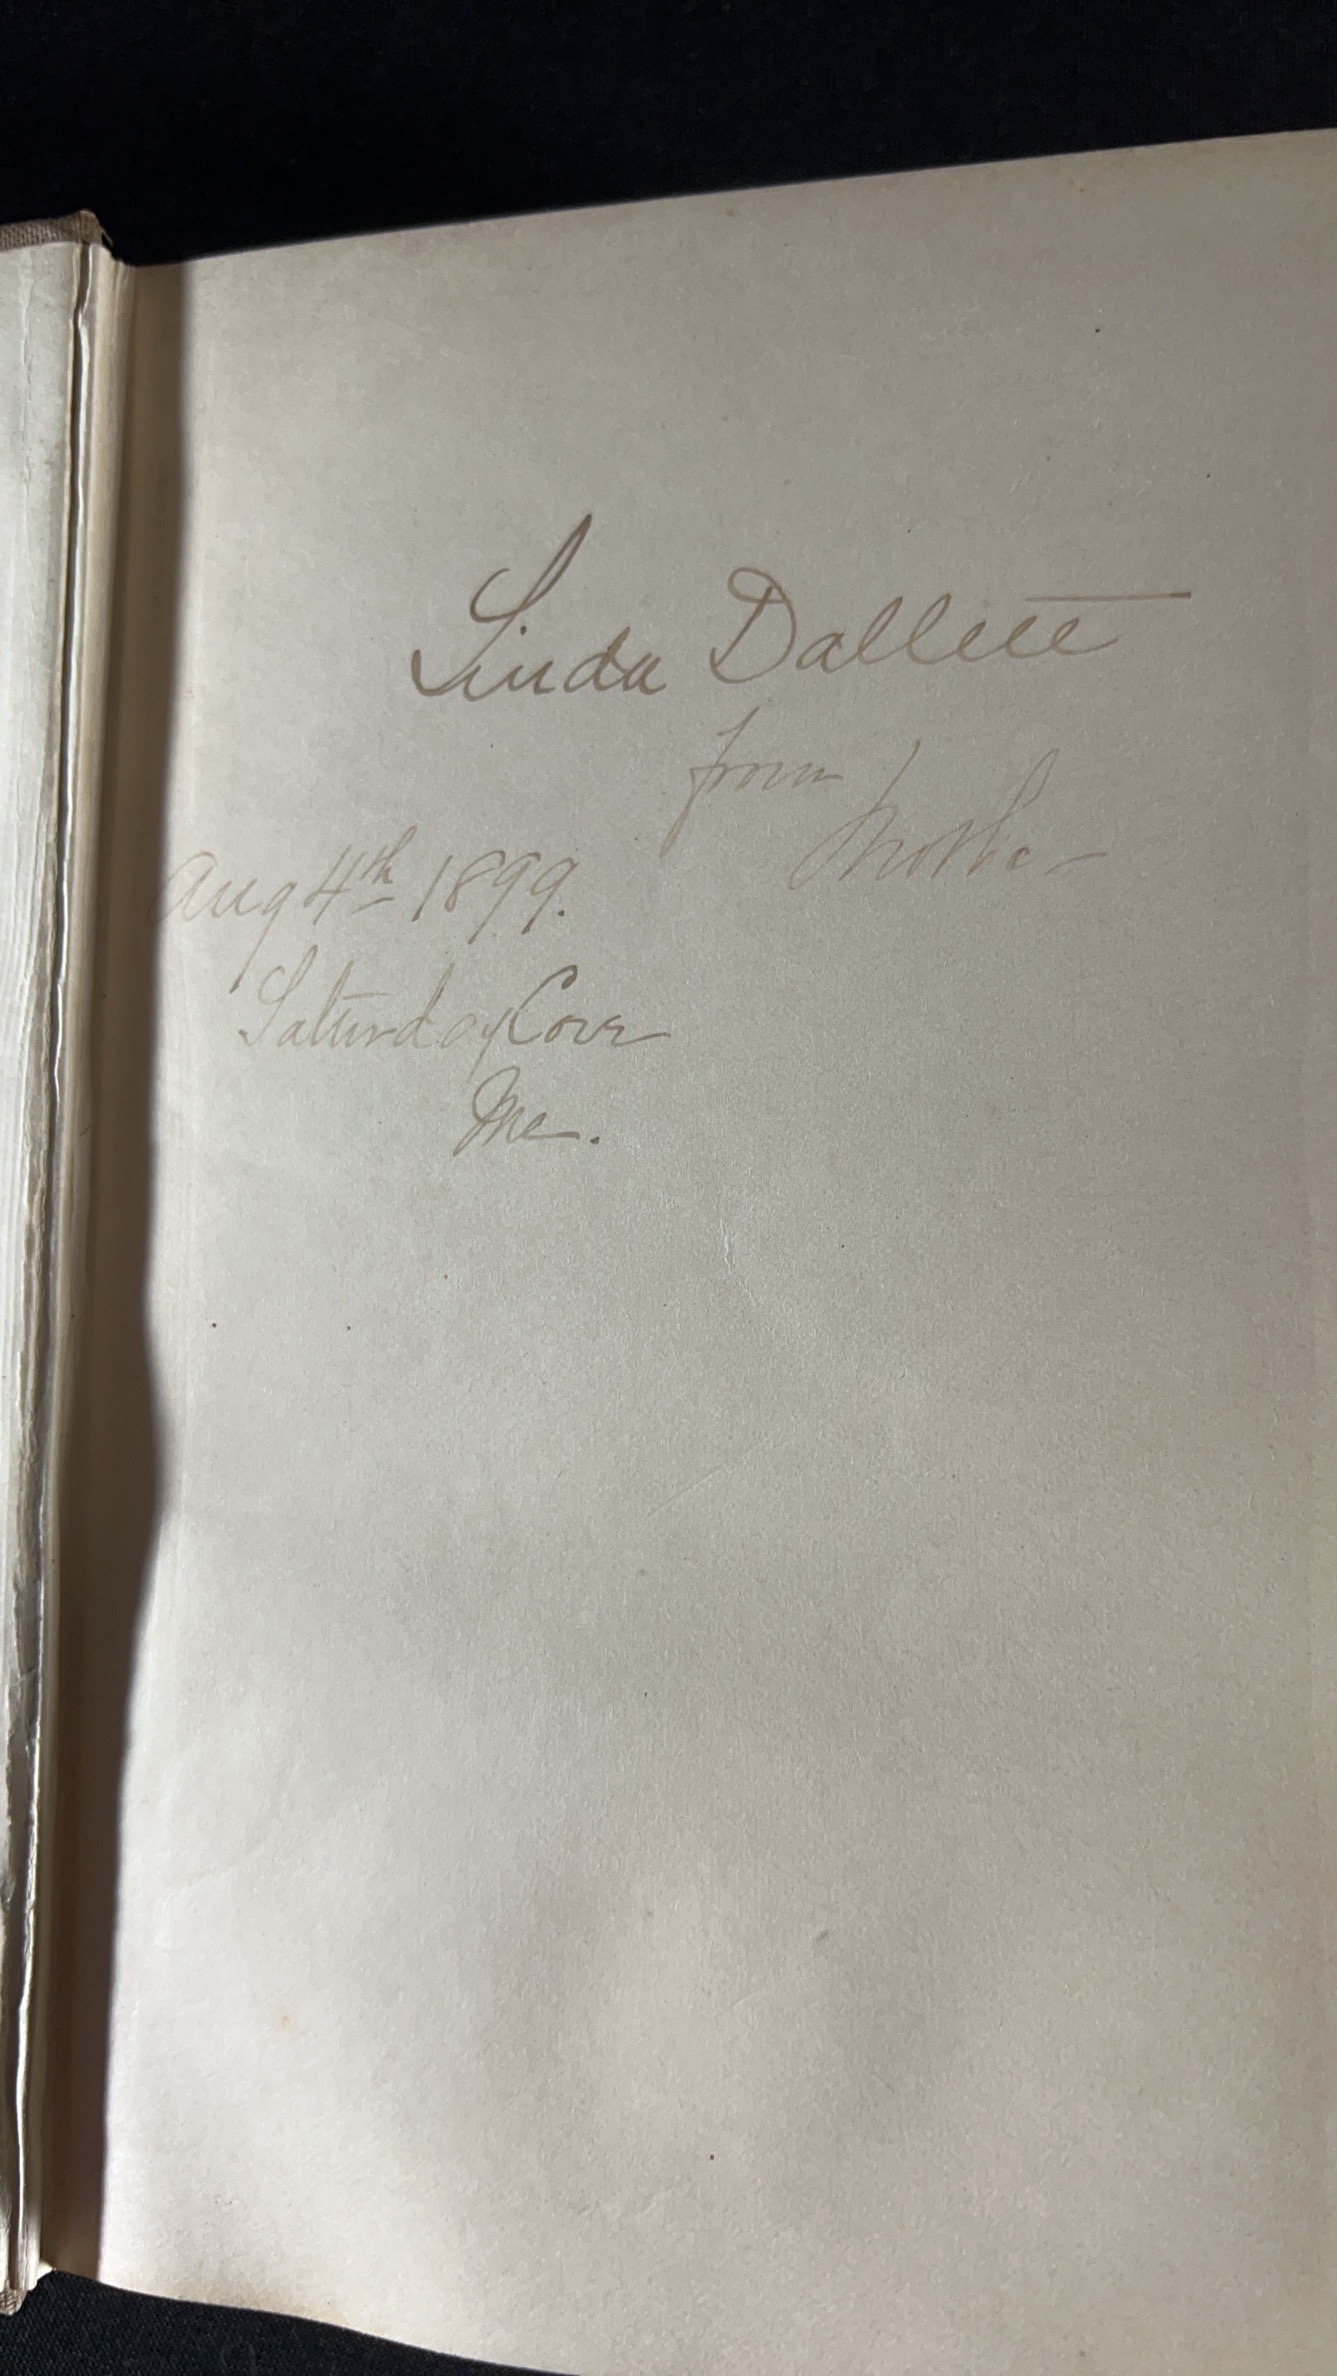 Linda Dallett
from
Mother
Aug 4th 1899.
Saturday Cove
Me.